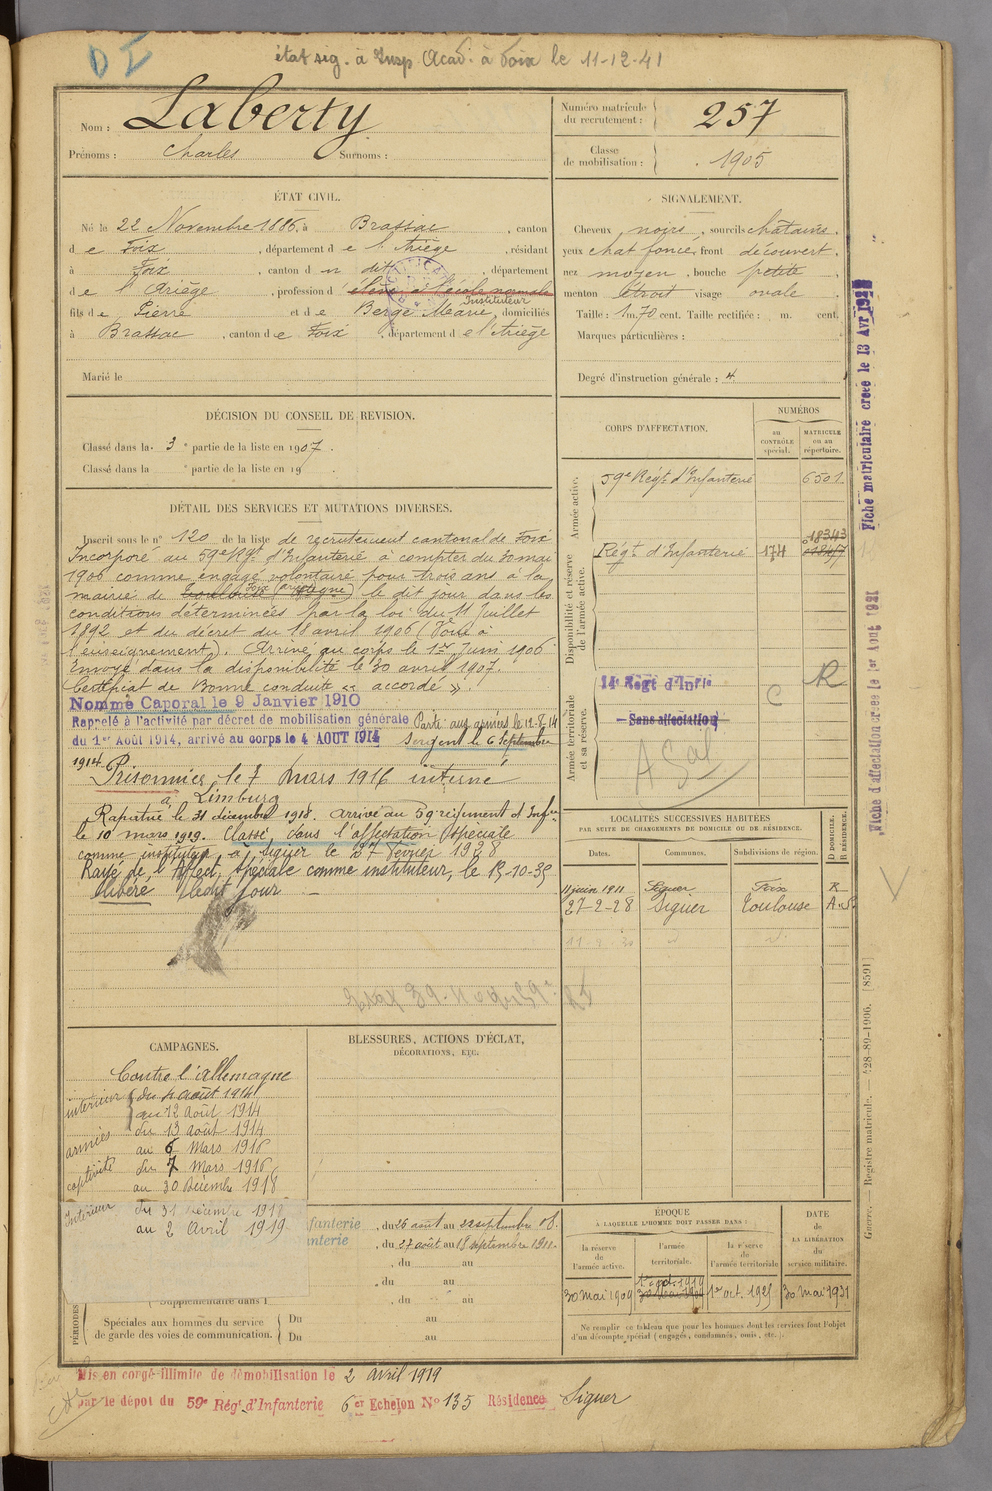 D I
état sig. à Insp. Acad. à Foix le 11-12-41
Nom : Laberty
Prénoms : Charles Surnoms :
Numéro matricule du recrutement : 257
Classe de mobilisation : 1905
ÉTAT CIVIL.
Né le 22 Novembre 1886, à Brassac, canton
de Foix, département de l'Ariège, résidant
à Foix, canton du dit, département
de l'Ariège, profession d'élève à l'école normale
Instituteur
fils de Pierre et de Berge Marie, domiciliés
à Brassac, canton de Foix, département de l'Ariège
Marié le
SIGNALEMENT.
Cheveux noirs, sourcils chatains.
yeux chat foncé, front découvert.
nez moyen, bouche petite
menton étroit visage ovale
Taille : 1 m. 70 cent. Taille rectifiée : m. cent.
Marques particulières :
Degré d'instruction générale : 4
DÉCISION DU CONSEIL DE REVISION.
Classé dans la 3e partie de la liste en 1907.
Classé dans la e partie de la liste en 19
DÉTAIL DES SERVICES ET MUTATIONS DIVERSES.
Inscrit sous le n° 120 de la liste de recrutement cantonal de Foix
Incorporé au 59e Rgt d'Infanterie à compter du 30 mai
1906 comme engagé volontaire pour trois ans à la
mairie de Foix (Ariège) le dit jour dans les
conditions déterminées par la loi du 11 Juillet
1892 et du décret du 18 avril 1906 (Voué à
l'enseignement). Arrivé au corps le 1er Juin 1906
Envoyé dans la disponibilité le 30 avril 1907.
Certificat de Bonne conduite « accordé ».
Nommé Caporal le 9 Janvier 1910
Rappelé à l'activité par décret de mobilisation générale Parti aux armées le 12-8-14
du 1er Août 1914, arrivé au corps le 4 AOUT 1914 Sergent le 6 Septembre
1914. Prisonnier le 7 Mars 1916 interné
à Limburg
Rapatrié le 31 décembre 1918. Arrivé au 59 régiment d'Infie
le 10 mars 1919. Classé dans l'affectation spéciale
comme instituteur à Siguer le 27 Février 1928
Rayé de l'Affect. Spéciale comme instituteur, le 15-10-35
libéré ledit jour
CORPS D'AFFECTATION.
NUMÉROS
au CONTRÔLE spécial.
MATRICULE ou au répertoire.
Armée active.
59e Régt d'Infanterie 6501
Disponibilité et réserve de l'armée active.
Régt d'Infanterie 174 018343
Armée territoriale et sa réserve.
14e Régt d'Infie C R
Sans affectation
LOCALITÉS SUCCESSIVES HABITÉES
PAR SUITE DE CHANGEMENTS DE DOMICILE OU DE RÉSIDENCE.
Dates. Communes. Subdivisions de région. D DOMICILE. R RÉSIDENCE.
11 juin 1911 Siguer Foix R
27-2-28 Siguer Toulouse
CAMPAGNES.
Contre l'Allemagne
intérieur du 4 août 1914
au 12 août 1914
armées du 13 août 1914
au 6 Mars 1916
captivité du 7 Mars 1916
au 30 Décembre 1918
Intérieur du 31 décembre 1918
au 2 Avril 1919
BLESSURES, ACTIONS D'ÉCLAT,
DÉCORATIONS, ETC.
PÉRIODES
nfanterie, du 26 août au 22 septembre 08.
nterie, du 27 août au 18 septembre 1911.
, du au
, du au
Supplémentaire dans l , du au
Spéciales aux hommes du service
de garde des voies de communication. Du au
Du au
ÉPOQUE
À LAQUELLE L'HOMME DOIT PASSER DANS :
la réserve de l'armée active.
l'armée territoriale.
la réserve de l'armée territoriale
DATE de LA LIBÉRATION du service militaire.
30 mai 1909 1er oct. 1919 1er oct. 1925 30 mai 1931
Ne remplir ce tableau que pour les hommes dont les services font l'objet
d'un décompte spécial (engagés, condamnés, omis, etc.).
Mis en congé illimité de démobilisation le 2 avril 1919
par le dépôt du 59e Régt d'Infanterie 6er Echelon N° 135 Résidence Siguer
Fiche matriculaire créée le 13 Avr 1928
Fiche d'affectation créée le 1er Août 1921
Guerre. — Registre matricule. — 428-89-1906. [8591]